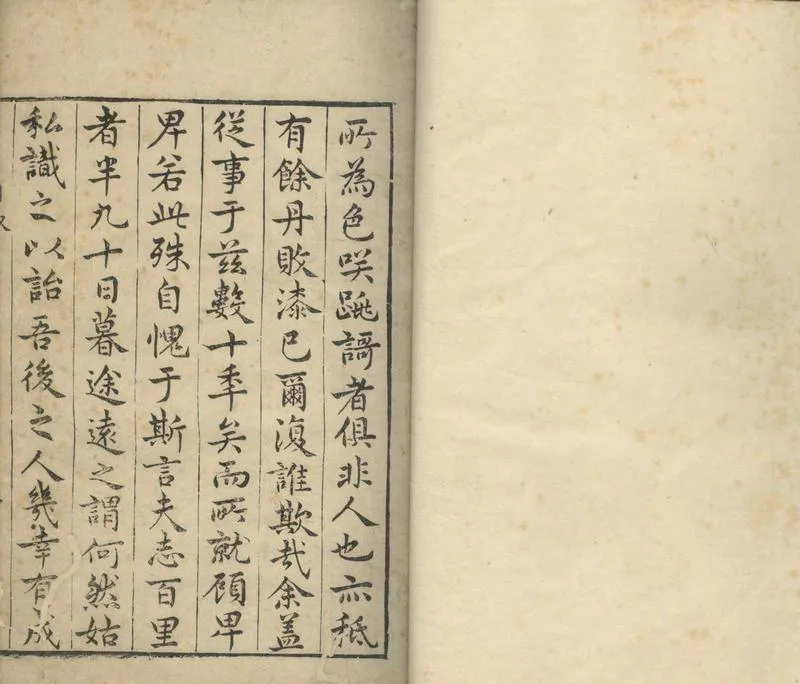 所為色咲跳謌者俱非人也亦秪
有餘丹敗漆已爾復誰欺㢤余盖
従事于茲數十秊矣而所就顧卑
卑若此殊自愧于斯言夫志百里
者半九十日暮途遠之謂何然姑
私識之以詒吾後之人幾幸有成